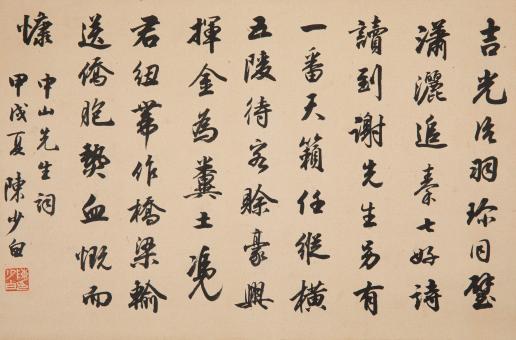 吉光片羽珎同璧
瀟灑追秦七好詩
讀到謝先生另有
一番天籟任縱横
五陵待客賒豪興
揮金為糞土憑
君紐帶作橋梁輸
送僑胞熱血慨而
慷
中山先生詞
甲戌夏 陳少白